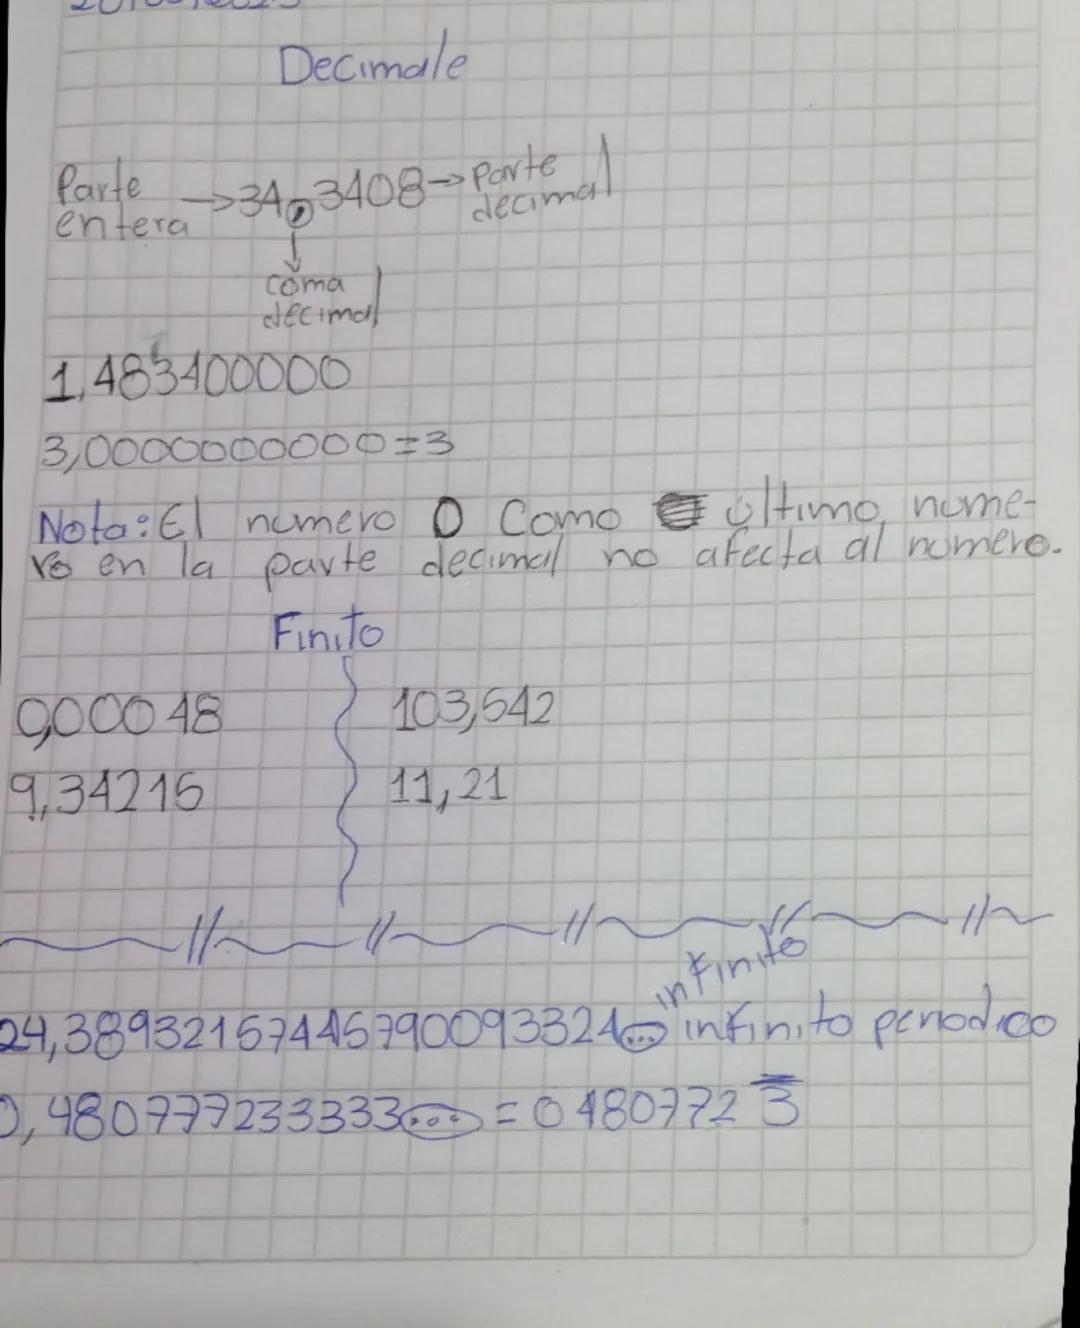 Decimale
Parte entera → 34,3408 → Parte decimal
↓
coma
decimal
1,483400000
3,0000000000=3
Nota: El numero 0 Como último nume-
ro en la parte decimal no afecta al numero.
Finito
0,00048 103,542
9,34215 11,21
infinito
24,38932157445790093324... infinito periodico
0,480777233333... = 0480772 3̅